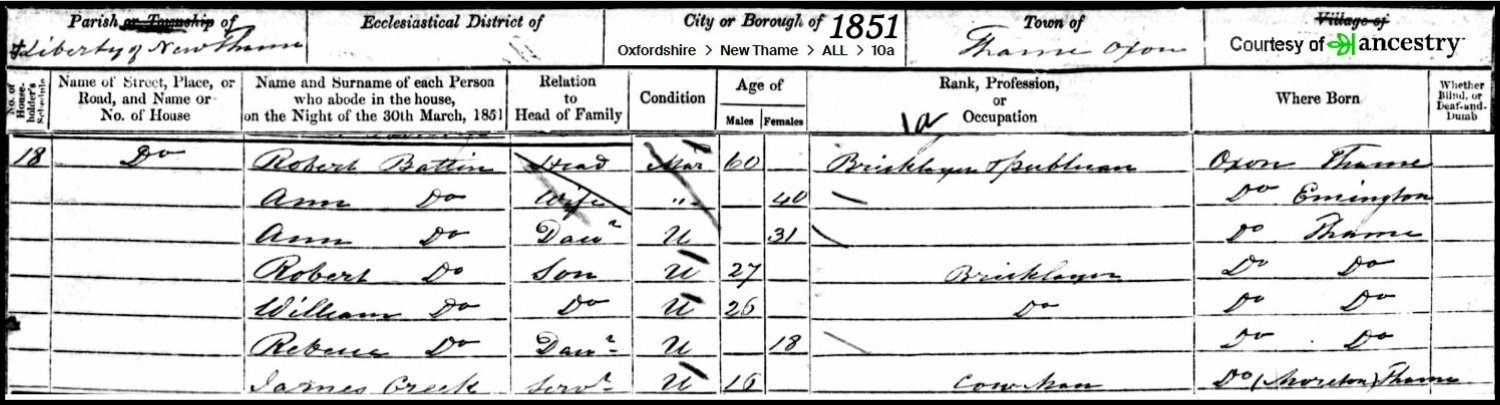 Parish or Township of Ecclesiastical District of City or Borough of 1851 Town of Village of
Liberty of New Thame Oxfordshire > New Thame > ALL > 10a Thame Oxon Courtesy of ancestry
No. of House-holder's Schedule Name of Street, Place, or Road, and Name or No. of House Name and Surname of each Person who abode in the house, on the Night of the 30th March, 1851 Relation to Head of Family Condition Age of Males Females Rank, Profession, or Occupation Where Born Whether Blind, or Deaf-and-Dumb
18 Do Robert Battin Head Mar 60 Bricklayer & publican Oxon Thame
Ann Do Wife " 40 Do Emington
Ann Do Daur U 31 Do Thame
Robert Do Son U 27 Bricklayer Do Do
William Do Do U 26 Do Do Do
Rebecca Do Daur U 18 Do Do
James Creek Servt U 16 Cow Man Do (Moreton) Thame